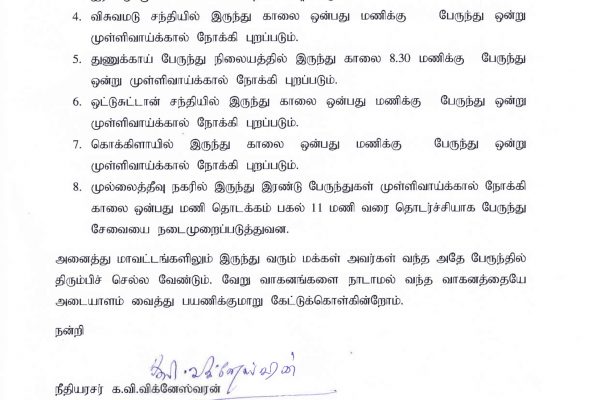 4. விசுவமடு சந்தியில் இருந்து காலை ஒன்பது மணிக்கு பேருந்து ஒன்று
முள்ளிவாய்க்கால் நோக்கி புறப்படும்.
5. துணுக்காய் பேருந்து நிலையத்தில் இருந்து காலை 8.30 மணிக்கு பேருந்து
ஒன்று முள்ளிவாய்க்கால் நோக்கி புறப்படும்.
6. ஒட்டுசுட்டான் சந்தியில் இருந்து காலை ஒன்பது மணிக்கு பேருந்து ஒன்று
முள்ளிவாய்க்கால் நோக்கி புறப்படும்.
7. கொக்கிளாயில் இருந்து காலை ஒன்பது மணிக்கு பேருந்து ஒன்று
முள்ளிவாய்க்கால் நோக்கி புறப்படும்.
8. முல்லைத்தீவு நகரில் இருந்து இரண்டு பேருந்துகள் முள்ளிவாய்க்கால் நோக்கி
காலை ஒன்பது மணி தொடக்கம் பகல் 11 மணி வரை தொடர்ச்சியாக பேருந்து
சேவையை நடைமுறைப்படுத்துவன.
அனைத்து மாவட்டங்களிலும் இருந்து வரும் மக்கள் அவர்கள் வந்த அதே பேரூந்தில்
திரும்பிச் செல்ல வேண்டும். வேறு வாகனங்களை நாடாமல் வந்த வாகனத்தையே
அடையாளம் வைத்து பயணிக்குமாறு கேட்டுக்கொள்கின்றோம்.
நன்றி
க.வி.விக்னேஸ்வரன்
நீதியரசர் க.வி.விக்னேஸ்வரன்